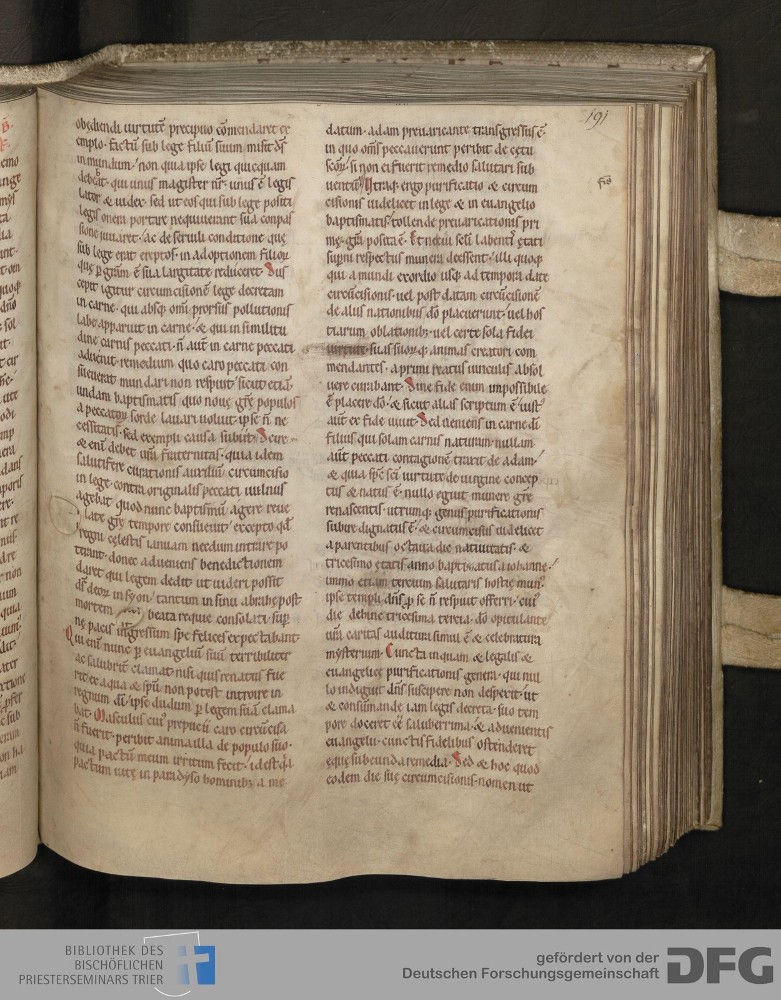 obediendi uirtutē precipuo cōmendaret ex
emplo. factū sub lege filiū suum misit dš
in mundum. non qua ipse legi quicquam
debeat. qui unus magister nr̄. unus ē legis
lator & iudex. sed ut eos qui sub lege positi
legis onera portare nequiuerant sua conpas
sione iuuaret. ac de seruili conditione quę
sub lege erat ereptos. in adoptionem filioꝝ
quę ꝑ gr̄am ē sua largitate reduceret. Sus
cepit igitur circumcisionē lege decretam
in carne. qui absq; omī prorsus pollutionis
labe apparuit in carne. & qui in similitu
dine carnis peccati. n̄ aut̄ in carne peccati
aduenit. remedium quo caro peccati con
sueuerat mundari non respuit. sicut etiā
undam baptismatis quo nouę gr̄ę populos
a peccatoꝝ sorde lauari uoluit. ipse n̄ ne
cessitatis. sed exempli causa subiit. Scire
& enī debet ur̄a fraternitas. quia idem
salutifere curationis auxiliū circumcisio
in lege contra originalis peccati uulnus
agebat. quod nunc baptismū agere reue
late gr̄ę tempore consueuit. excepto qđ
regni cęlestis ianuam necdum intrare po
terant. donec adueniens benedictionem
daret qui legem dedit ut uideri possit
dš deoꝝ in syon. tantum in sinu abrahę post
mortem beata requie consolati. sup̄
nę pacis ingressum spe felices expectabant.
Qui enī nunc ꝑ euangeliū suū terribiliter
ac salubrit̄ clamat. nisi quis renatus fue
rit ex aqua & spū. non potest introire in
regnum dī. ipse dudum ꝑ legem suā clama
bat. Masculus cui' prepucii caro circūcisa
n̄ fuerit. peribit anima illa de populo suo.
quia pactū meum irritum fecit. idest q̄a
pactum uitę in paradyso hominibꝫ a me
191
datum. adam preuaricante transgressus ē.
in quo om̄s peccauerunt peribit de cętu
scōꝝ. si non ei fuerit remedio salutari sub
uentū. Utraq; ergo purificatio & circum
cisionis uidelicet in lege & in euangelio
baptismatis. tollende preuaricationis pri
mę. gr̄a posita ē. Et ne cui sc̄li labenti' ętati
sup̄ni respectus munera deessent. illi quoq;
qui a mundi exordio usq; ad tempora datę
circūcisionis. uel post datam circūcisionē
de aliis nationibus dō placuerunt. uel hos
tiarum oblationibꝫ. uel certe sola fidei
uirtute. suas suoꝝ q; animas creatori com
mendantes. a primi reatus uinculis absol
uere curabant. Sine fide enim impossibile
ē placere dō. & sicut alias scriptum ē. iust'
aut̄ ex fide uiuit. Sed ueniens in carne dī
filius qui solam carnis naturam. nullam
aut̄ peccati contagionē traxit de adam.
& quia spē sc̄i uirtute de uirgine concep
tus & natus ē. nullo eguit munere gr̄ę
renascentis. utrumq; genus purificationis
subire dignatus ē. & circumcisus uidelicet
a parentibus octaua die natiuitatis. &
tricesimo ętatis anno baptizatus a iohanne.
immo etiam tercium salutaris hostię mun'
ipse templi dn̄s ꝑ se n̄ respuit offerri. cui'
die dehinc tricesima tercia. dō opitulante
ur̄a caritas auditura simul ē & celebratura
mysterium. Cuncta inquam & legalis &
euangelicę purificationis genera. qui nul
lo indiguit dn̄s suscipere non despexit. ut
& consummande iam legis decreta. suo tem
pore doceret ēē saluberrima. & aduenientis
euangelii. cunctis fidelibus ostenderet
ęque subeunda remedia. Sed & hoc quod
eodem die suę circumcisionis. nomen ut
BIBLIOTHEK DES
BISCHÖFLICHEN
PRIESTERSEMINARS TRIER
gefördert von der
Deutschen Forschungsgemeinschaft
DFG